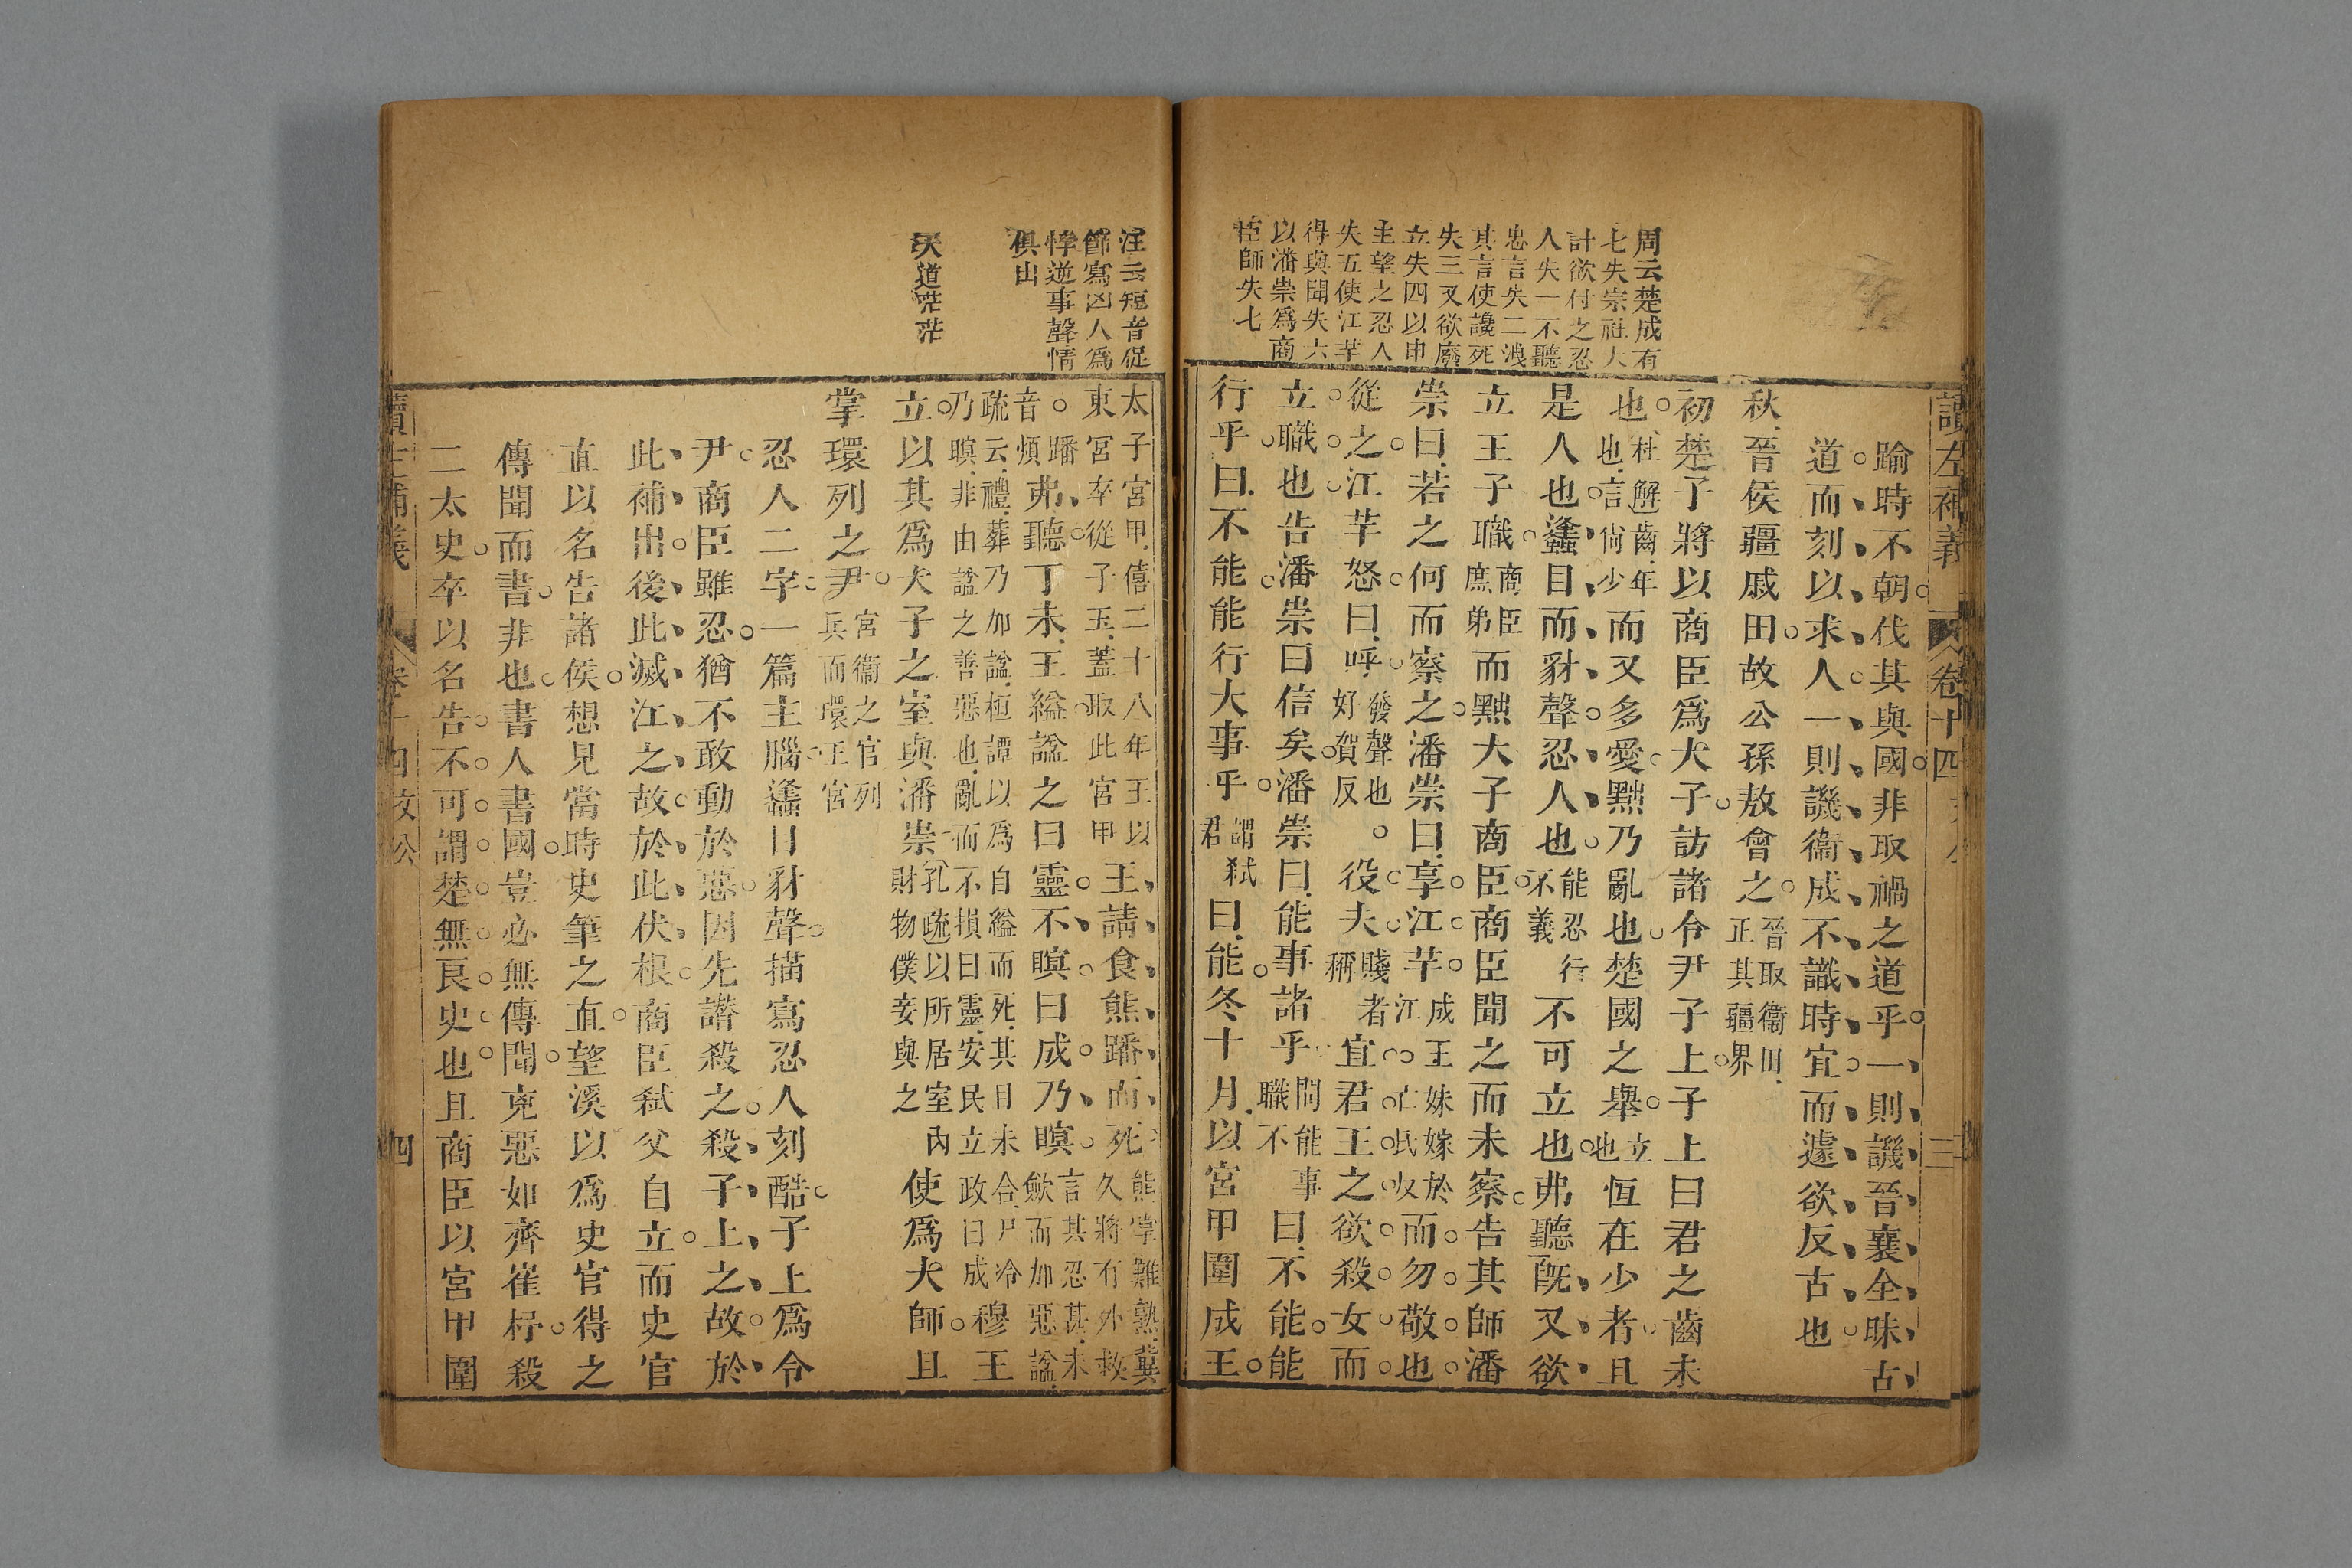 讀左補義 卷十四 三
周云楚成有
七失宗社大
計欲付之忍
人失一不聽
忠言失二洩
其言使讒死
失三又欲廢
立失四以申
主望之忍人
失五使江芊
得與聞失六
以潘崇爲商
臣師失七
踰時不朝伐其與國非取禍之道乎一則譏晉襄全昧古
道而刻以求人一則譏衞成不識時宜而遽欲反古也
秋晉侯疆戚田故公孫敖會之晉取衞田正其疆界
初楚子將以商臣爲大子訪諸令尹子上子上曰君之齒未
也杜解齒年也言尙少而又多愛黜乃亂也楚國之舉立也恆在少者且
是人也蠭目而豺聲忍人也能忍行不義不可立也弗聽旣又欲
立王子職商臣庶弟而黜大子商臣商臣聞之而未察告其師潘
崇曰若之何而察之潘崇曰享江芊成王妹嫁於江○亡氏反而勿敬也
從之江芊怒曰呼發聲也好賀反○役夫賤者稱宜君王之欲殺女而
立職也告潘崇曰信矣潘崇曰能事諸乎問能事職不曰不能能
行乎曰不能能行大事乎謂弑君曰能冬十月以宮甲圍成王
汪云短音促
節寫凶人爲
悖逆事聲情
俱出
天道茫茫
太子宮甲僖二十八年王以東宮卒從子玉蓋取此宮甲王請食熊蹯而死熊掌難熟冀久將有外救
○蹯音煩弗聽丁未王縊諡之曰靈不瞑曰成乃瞑言其忍甚未歛而加惡諡
疏云禮葬乃加諡桓譚以爲自縊而死其目未合尸冷乃瞑非由諡之善惡也亂而不損曰靈安民立政曰成穆王
立以其爲大子之室與潘崇孔疏以所居室內財物僕妾與之使爲大師且
掌環列之尹宮衞之官列兵而環王宮
忍人二字一篇主腦蠭目豺聲描寫忍人刻酷子上爲令
尹商臣雖忍猶不敢動於惡因先譖殺之殺子上之故於
此補出後此滅江之故於此伏根商臣弑父自立而史官
直以名告諸侯想見當時史筆之直望溪以爲史官得之
傳聞而書非也書人書國豈必無傳聞兇惡如齊崔杼殺
二太史卒以名告不可謂楚無良史也且商臣以宮甲圍
讀左補義 卷十四 文公 四